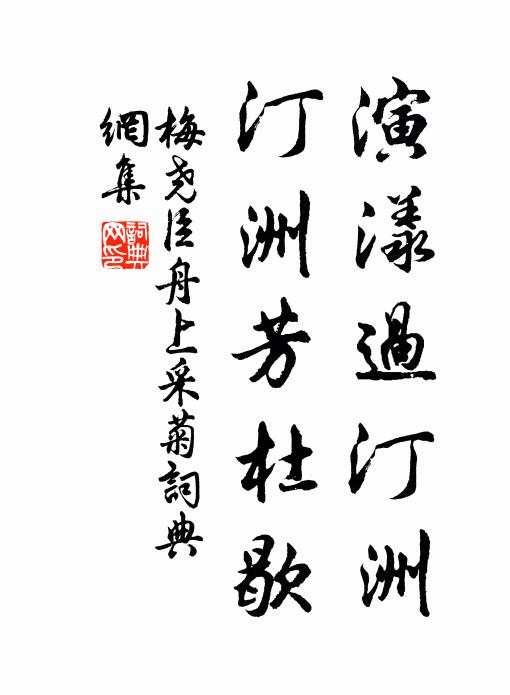 演漾過汀洲
汀洲芳杜歇
梅堯臣舟上采菊詞典
網集
詞典
网印